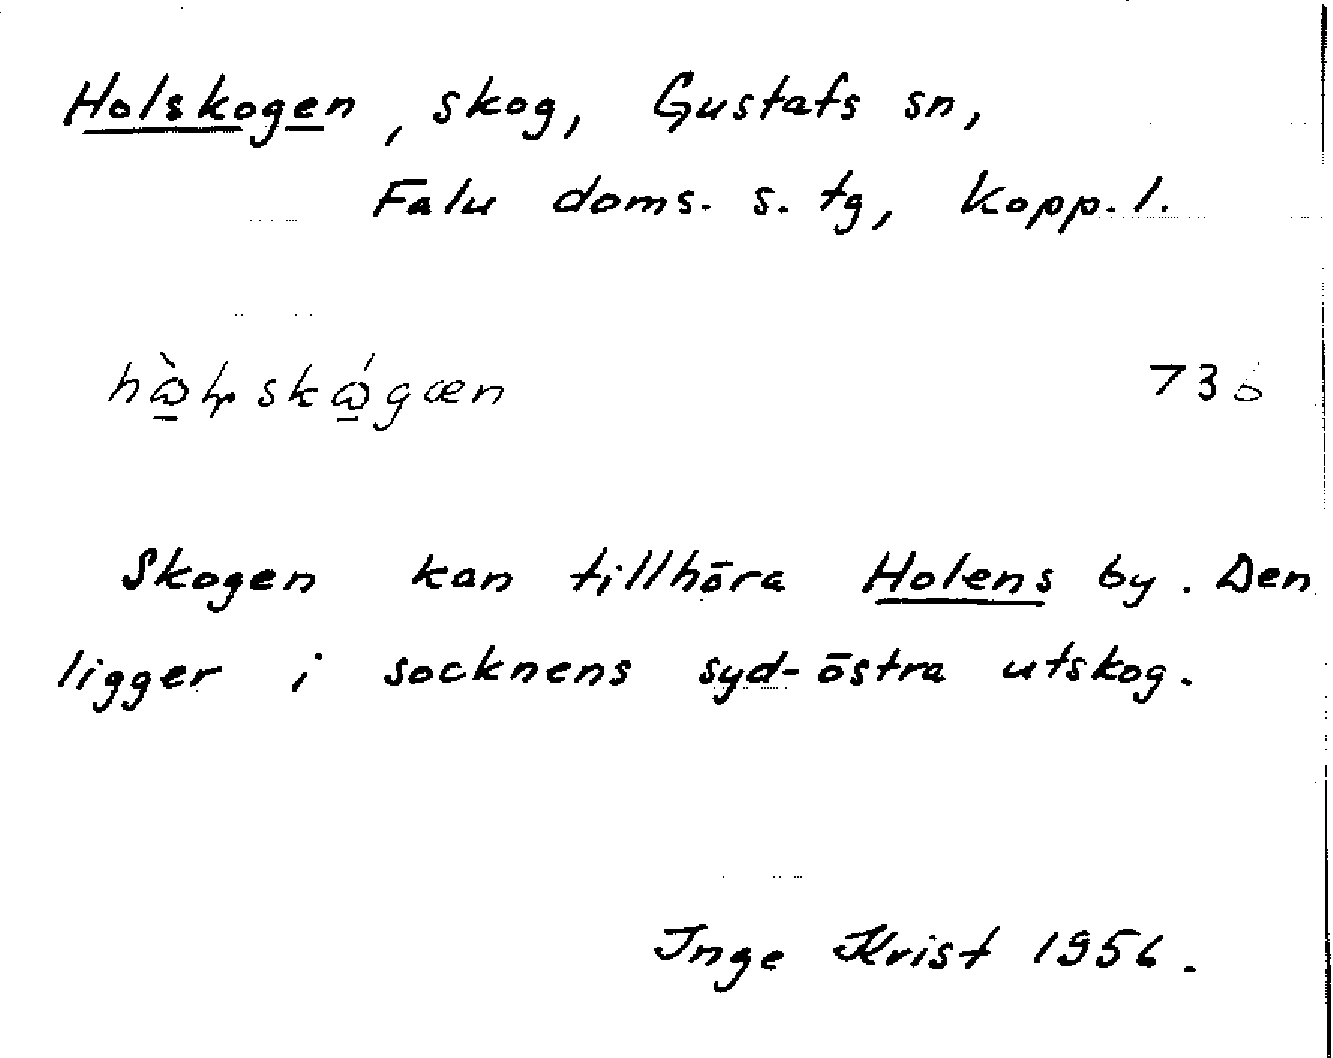 Holskogen, skog, Gustafs sn,
Falu doms. s. tg, Kopp. l.
Skogen kan tillhöra Holens by. Den
ligger i socknens syd-östra utskog.
Inge Krist 1956.